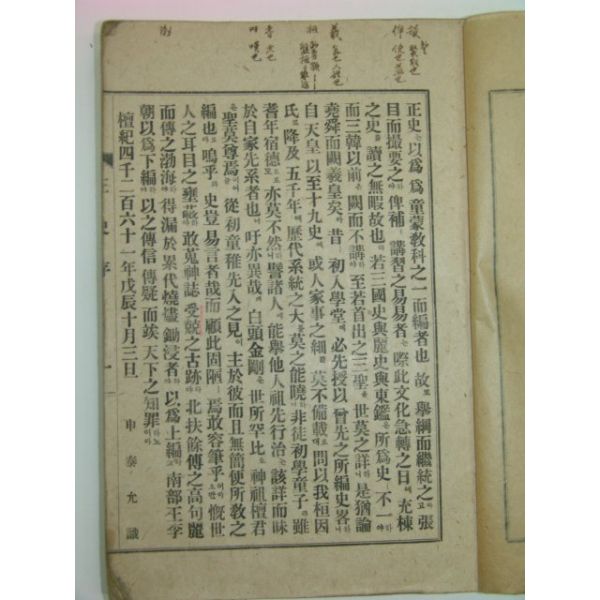 正史는以爲爲童蒙敎科之一而編者也라故로擧綱而繼統之하고張
目而撮要之하야俾補講習之易易者는際此文化急轉之日에充棟
之史를讀之無暇故也라若三國史與麗史與東鑑은所爲史不一하야
而三韓以前은闕而不講하고至若首出之三聖을世莫之詳하니是猶論
堯舜而闕羲皇矣라昔에初入學堂에必先授以曾先之所編史畧하니
自天皇以至十九史에或人家事之細를莫不備載로되問以我桓因
氏로降及五千年에歷代系統之大를莫之能曉하니非徒初學童子라雖
耆年宿德으로도亦莫不然하니譬諸人에能擧他人祖先行治를該詳而昧
於自家先系者也라吁亦異哉저白頭金剛은世所罕比오神祖檀君
은聖莫尊焉이어늘從初童稚先入之見이主於彼而且無簡便所敎之
編也라嗚乎라史豈易言者哉아而顧此固陋로焉敢容筆乎리오마는慨世
人之耳目之壅蔽하야敢蒐神誌受兢之古跡하야北扶餘傳之高句麗
而傳之渤海하야得漏於累代燒燼鋤浸者하야以爲上編하고南部王李
朝以爲下編하야以之傳信傳疑而竢天下之知罪하노라
檀紀四千二百六十一年戊辰十月三日 申泰允識
正史序 一